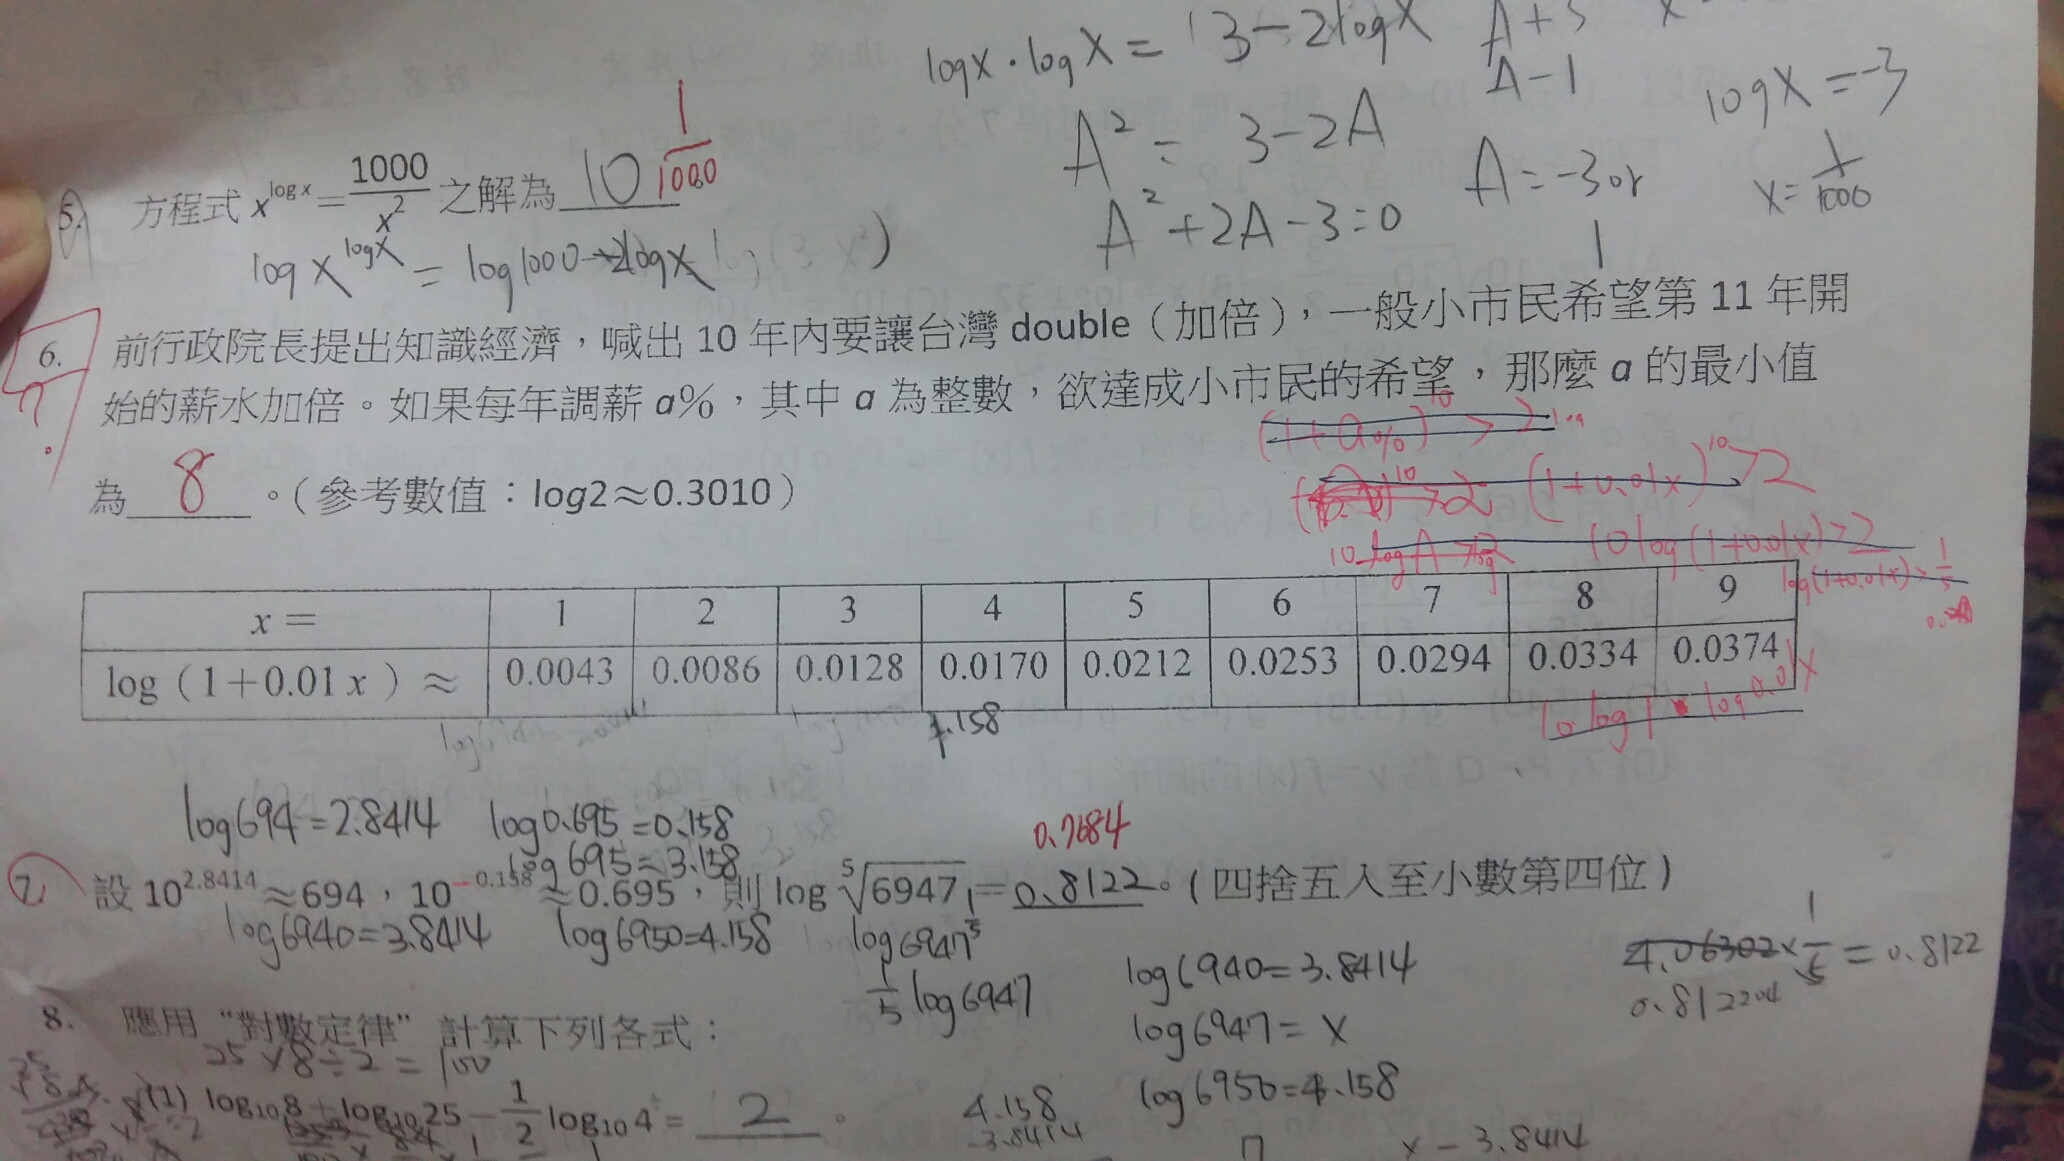 logx·logx = 3-2logx
A-1
logx=-3
A² = 3-2A
A=-3or
1
x= 1/1000
A²+2A-3=0
5. 方程式 x^{log x} = 1000/x² 之解為 10 1/1000
logx^{logx} = log1000-2logx
6. 前行政院長提出知識經濟，喊出 10 年內要讓台灣 double（加倍），一般小市民希望第 11 年開
始的薪水加倍。如果每年調薪 a%，其中 a 為整數，欲達成小市民的希望，那麼 a 的最小值
?
(1+a%)^{10} > 2
為 8 。（參考數值：log2≈0.3010）
(1+0.01x)^{10}>2
10 log A > log2
10log(1+0.01x)>2
log(1+0.01x)> 1/5
x = 1 2 3 4 5 6 7 8 9
log（1+0.01 x ）≈ 0.0043 0.0086 0.0128 0.0170 0.0212 0.0253 0.0294 0.0334 0.0374
10 log1 log0.01x
log694=2.8414 log0.695=0.158
0.7684
log695=3.158
7. 設 10^{2.8414}≈694，10^{-0.158}≈0.695，則 log ⁵√6947 = 0.8122。（四捨五入至小數第四位）
log6940=3.8414 log6950=4.158 log6947^{1/5}
1/5 log6947
log6940=3.8414
4.06302×1/5=0.8122
0.812204
log6947= x
8. 應用“對數定律”計算下列各式：
25×8÷2=100
log6950=4.158
(1) log₁₀8+log₁₀25-1/2 log₁₀4= 2 。
4.158
-3.8414
x-3.8414